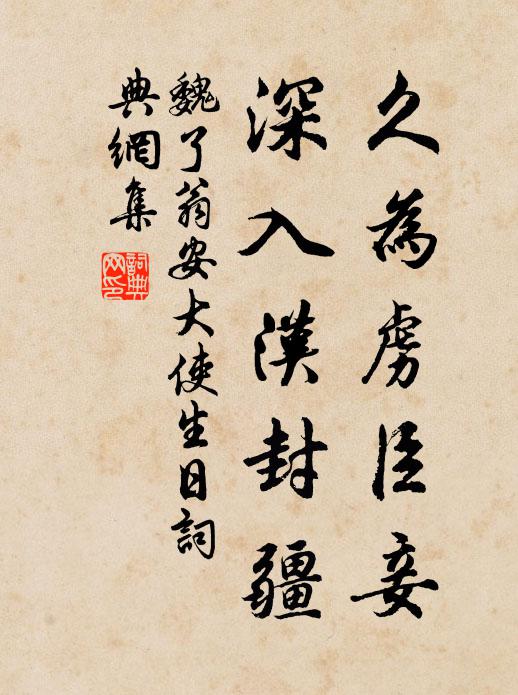 久為虜臣妾
深入漢封疆
魏了翁安大使生日詞
典網集
詞典
网印